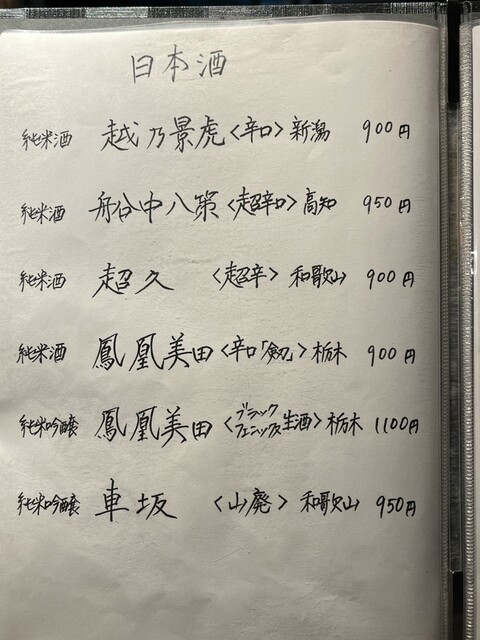 日本酒
純米酒 越乃景虎〈辛口〉新潟 900円
純米酒 船中八策〈超辛口〉高知 950円
純米酒 超久 〈超辛〉和歌山 900円
純米酒 鳳凰美田〈辛口「劔」〉栃木 900円
純米吟醸 鳳凰美田〈ブラックフェニックス生酒〉栃木 1100円
純米吟醸 車坂 〈山廃〉和歌山 950円